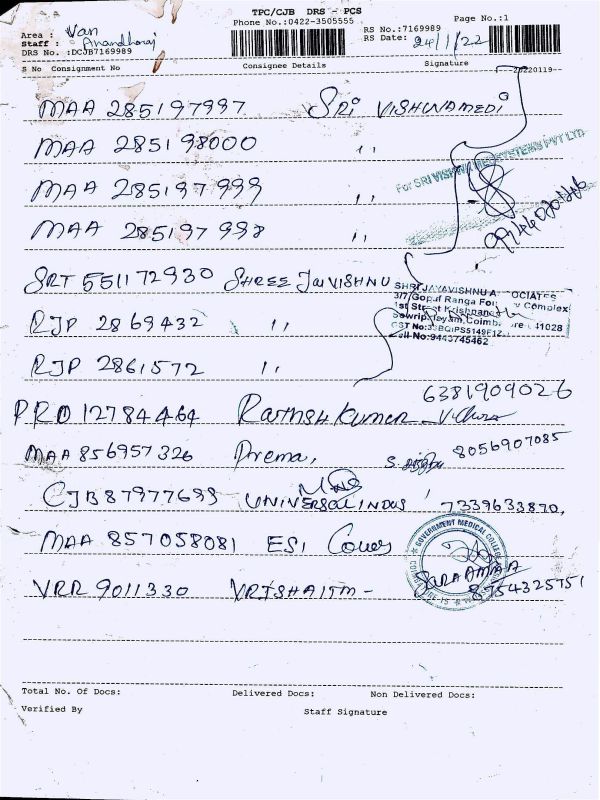 TPC/CJB DRS - PCS
Phone No.:0422-3505555
Page No.:1
Area : Van
Staff : Anandharaj
DRS No. :DCJB7169989
RS No.:7169989
RS Date: 24/1/22
S No Consignment No Consignee Details Signature
20220119--
MAA 285197997 Sri VISHWAMEDi
MAA 285198000 ,,
MAA 285197999 ,,
For SRI
SYSTEMS PVT LTD
MAA 285197998 ,,
SRT 551172930 SHREE JaiVISHNU
SHRI JAYAVISHNU ASSOCIATES
3/7 Gopal Ranga Complex
1st Street
RJP 2869432 ,,
Coimb ore 41028
Cell No:9443745462
RJP 2861572 ,,
6381909026
PRO 12784464
MAA 856957326 Prema, 8056907085
CJB 87977693 UNIVERSAL 7339633870,
MAA 857058081 ESI
GOVERNMENT MEDICAL COLLEGE
VRR 9011330
8754325751
Total No. Of Docs: Delivered Docs: Non Delivered Docs:
Verified By Staff Signature